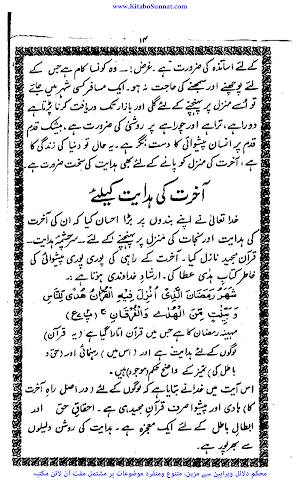 www.KitaboSunnat.com
۱۴
کے لئے اساتذہ کی ضرورت ہے۔ غرض! ــ وہ کونسا کام ہے جس کے
لئے پوچھنے اور سمجھنے کی حاجت نہ ہو۔ ایک مسافر کسی شہر میں جائے
تو اُسے منزل پر پہنچنے کے لئے گلی اور بازار تک دریافت کرنا پڑتا ہے
دوراہے، تراہے اور چوراہے پر روشنی کی ضرورت ہے، بیشک قدم
قدم پر انسان پیشوائی کا دست نگر ہے۔ یہ حال تو دنیا کی زندگی کا
ہے، آخرت کی منزل کو پانے کے لئے بھی ہدایت کی سخت ضرورت ہے
آخرت کی ہدایت کیلئے
خدا تعالیٰ نے اپنے بندوں پر بڑا احسان کیا کہ ان کی آخرت
کی ہدایت اور نجات کی منزل پر پہنچنے کے لئے ــ سرچشمۂ ہدایت ــ
قرآن مجید نازل کیا۔ آخرت کے راہی کی پوری پوری پیشوائی کی
خاطر کتاب ہدیٰ عطا کی۔ ارشادِ خداوندی ہوتا ہے:۔
شَهْرُ رَمَضَانَ الَّذِيْ اُنْزِلَ فِيْهِ الْقُرْاٰنُ هُدًى لِّلنَّاسِ
وَ بَيِّنٰتٍ مِّنَ الْهُدٰى وَ الْفُرْقَانِ
مہینہ رمضان کا ہے جس میں قرآن اتارا گیا ہے (یہ قرآن)
لوگوں کے لئے ہدایت ہے اور (اس میں) رہنمائی اور (حق و
باطل کی) تمیز کے واضح حکم (موجود) ہیں۔
اس آیت میں خدا نے بتایا ہے کہ لوگوں کے لئے (دراصل راہِ آخرت
کا) ہادی اور پیشوا صرف قرآنِ مجید ہی ہے۔ احقاقِ حق اور
ابطالِ باطل کے لئے ایک معجزہ ہے۔ ہدایت کی روشن دلیلوں
سے بھرپور ہے۔
محکم دلائل وبراہین سے مزین، متنوع ومنفرد موضوعات پر مشتمل مفت آن لائن مکتبہ